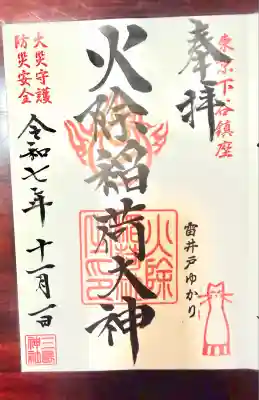 東京下谷鎮座
奉拝
雷井戸ゆかり
火除稲荷大神
火除
火災守護
防災安全
令和七年 十一月一日
三島
神社